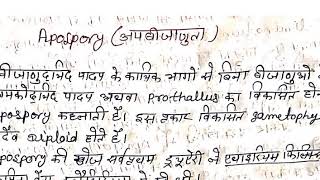 Apospory (अपबीजाणुता)
बीजाणुद्भिद पादप के कायिक भागों से बिना बीजाणुओं
युग्मकोद्भिद पादप अथवा Prothallus का विकसित होना
apospory कहलाती है। इस प्रकार विकसित gametophy
दैव diploid होते हैं।
apospory की खोज सर्वप्रथम ड्रूएरी ने एथाइरियम फिलिक्स